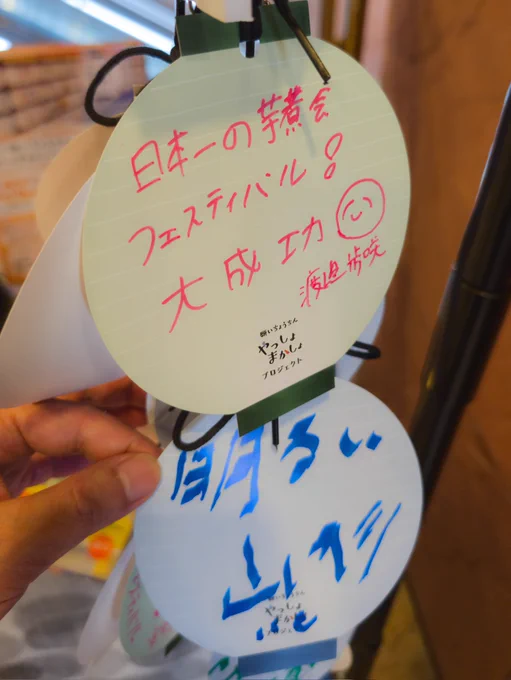 日本一の芋煮会
フェスティバル!
大成功
渡邉歩咲
願いちょうちん
やっしょ
まかしょ
プロジェクト
明るい
山形
願いちょうちん
やっしょ
まかしょ
プロジェクト